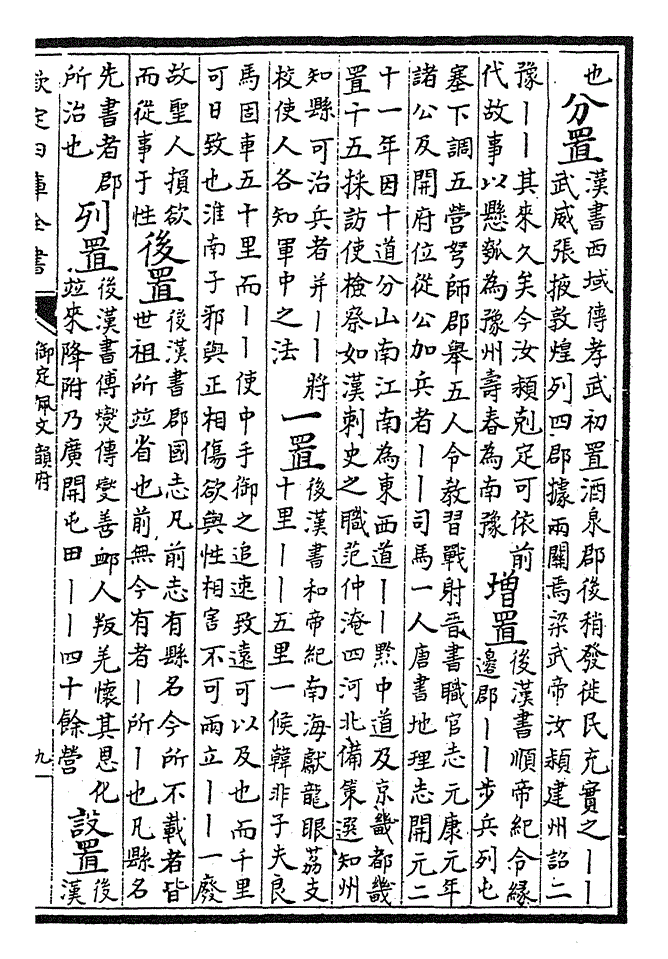 也
分置
漢書西域傳孝武初置酒泉郡後稍發徙民充實之丨丨
武威張掖敦煌列四郡據兩關焉梁武帝汝潁建州詔二
豫丨丨其來久矣今汝潁剋定可依前
代故事以懸瓠為豫州壽春為南豫
增置
後漢書順帝紀令緣
邊郡丨丨步兵列屯
塞下調五營弩師郡舉五人令教習戰射晉書職官志元康元年
諸公及開府位從公加兵者丨丨司馬一人唐書地理志開元二
十一年因十道分山南江南為東西道丨丨黔中道及京畿都畿
置十五採訪使檢察如漢刺史之職范仲淹四河北備策選知州
知縣可治兵者并丨丨將
校使人各知軍中之法
一置
後漢書和帝紀南海獻龍眼荔支
十里丨丨五里一候韓非子夫良
馬固車五十里而丨丨使中手御之追速致遠可以及也而千里
可日致也淮南子邪與正相傷欲與性相害不可兩立丨丨一廢
故聖人損欲
而從事于性
後置
後漢書郡國志凡前志有縣名今所不載者皆
世祖所並省也前無今有者丨所丨也凡縣名
先書者郡
所治也
列置
後漢書傅燮傳燮善䘏人叛羌懷其恩化
並來降附乃廣開屯田丨丨四十餘營
設置
後
漢
欽定四庫全書
御定佩文韻府
九